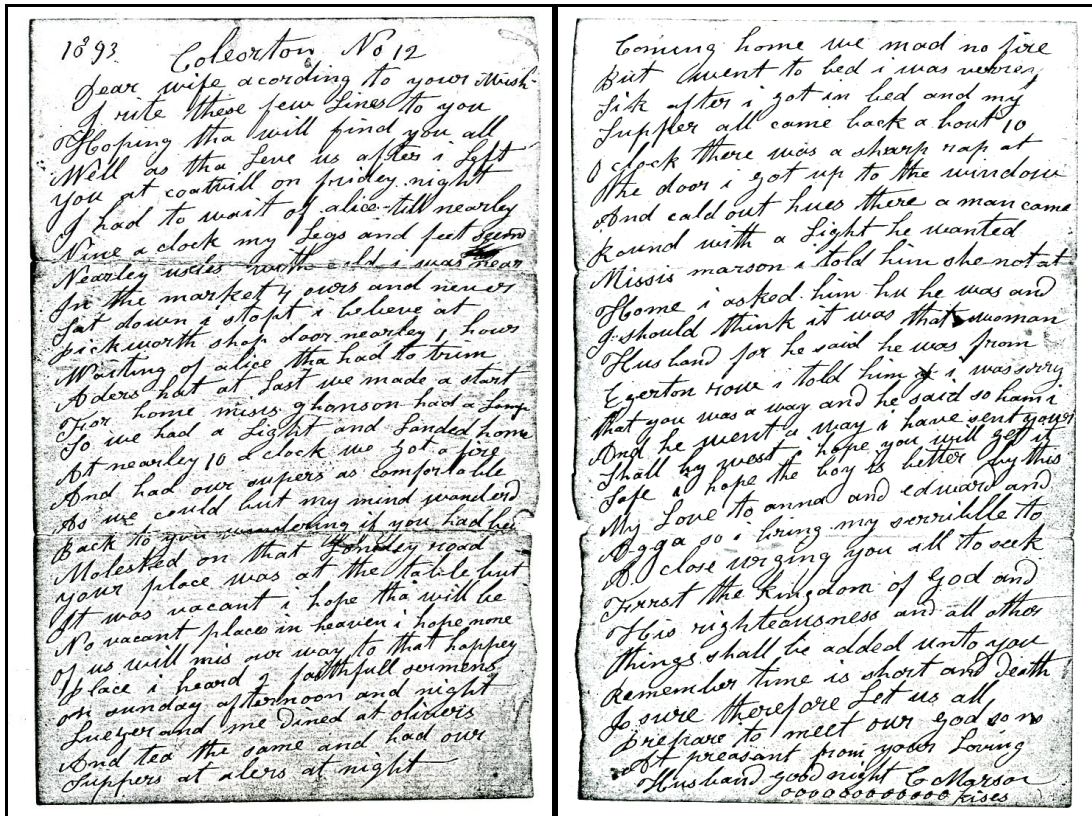 1893 Coleorton No 12
Dear wife acording to your Wish
I rite these few Lines to you
Hoping tha will find you all
Well as tha Leve us after i Left
you at coalvill on friday night
I had to wait of alice till nearley
Nine a clock my Legs and feet
Nearley usles with cold i was near
In the market 4 ours and never
Sat down i stopt i beleve at
pickworth shop door nearley 1 hour
Waiting of alice tha had to trim
Aders hat at Last we made a start
For home misis ghonson had a Lamp
So we had a Light and Landed home
At nearley 10 a clock we got a fire
And had our supers as comfortable
As we could but my mind wanderd
Back to you wundering if you had ben
Molested on that road
your place was at the table but
It was vacant i hope tha will be
No vacant places in heaven i hope none
Of us will mis our way to that happey
place i heard 2 faithfull sermens
on sunday afternoon and night
and me dined at olivers
And tea the same and had our
Suppers at alers at night
Coming home we mad no fire
But went to bed i was verrey
Sik after i got in bed and my
Supper all came back a bout 10
O clock there was a sharp rap at
the door i got up to the window
And cald out hues there a man came
Round with a Light he wanted
Missis marson i told him she not at
Home i asked him hu he was and
I should think it was that woman
Husband for he said he was from
Egerton row i told him i was sorry
that you was a way and he said so ham i
And he went a way i have sent your
Shall by west i hope you will get it
Safe i hope the boy is better by this
My Love to anna and edward and
Agga so i bring my serribble to
A close urging you all to seek
Firrst the Kingdom of God and
His righteousness and all other
things shall be added unto you
Remember time is short and death
Is sure therefore Let us all
prepare to meet our god so no
At preasant from your Loving
Husband good night C Marson
oooooooooooo kises